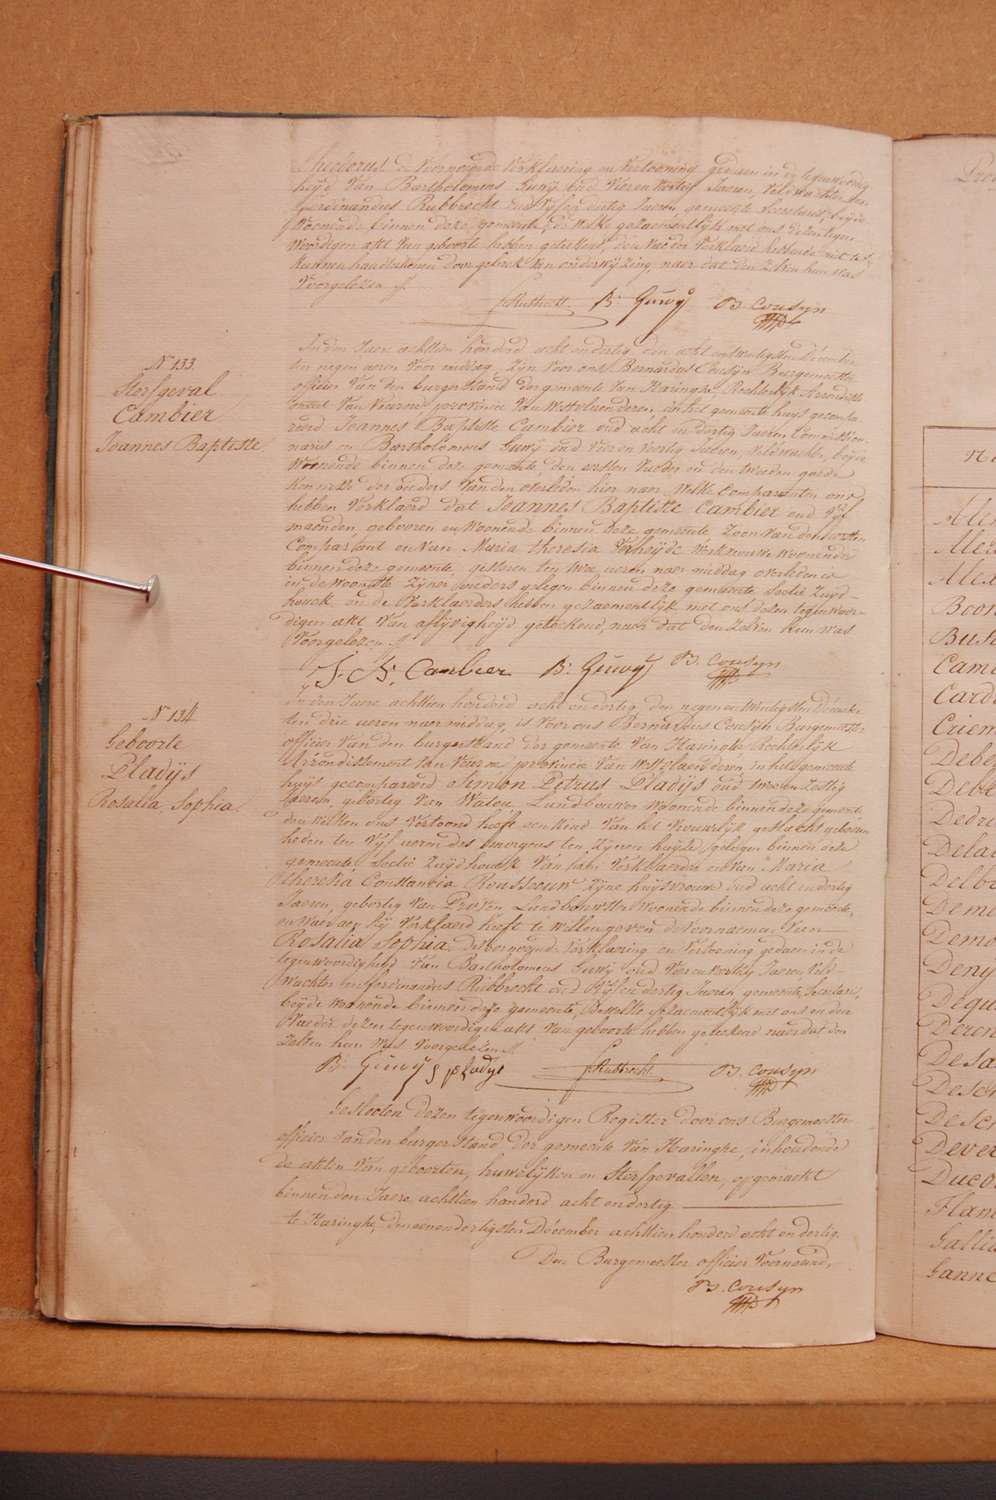 Theodorus de Voornoemde Verklaering en Vertooning gedaen in de tegenwoordig
heyd Van Bartholomeus Guwÿ oud Vier en Veertig Jaeren Veldwachter en
Ferdinandus Rubbrecht oud Vyf en dertig Jaeren, gemeente Secretaris, beyde
Woonende binnen deze gemeente, de welke gezaementlÿk met ons dezen tegen
Woordigen akt Van geboorte hebben geteekend, den Vader Verklaerd hebbende niet te
kunnen handteekenen door gebrek Van onderwÿzing, naer dat den Zelven hun was
Voorgelezen
F. Rubbrecht B: Guwÿ B. Cousyn
N 133.
Sterfgeval
Cambier
Joannes Baptiste
In den Jaere achttien honderd acht en dertig, den acht en twintigsten December
ten negen ueren Voor middag, Zÿn Voor ons Bernardus Cousÿn Burgemeester
officier Van den burgerstand der gemeente Van Haringhe, Rechterlÿk Arrondisse
ment Van Veurne, provincie Van Westvlaenderen, in het gemeente huys gecompa
reerd Joannes Baptiste Cambier oud acht en dertig Jaeren Commission
naris en Bartholomeus Guwÿ oud Vier en Veertig Jaeren, Veldwachter, beyde
Woonende binnen deze gemeente, den eersten Vader en den tweeden goede
kennisse der ouders Van den overleden hier naer, welke Comparanten ons
hebben Verklaerd dat Joannes Baptiste Cambier oud Vÿf
maenden, gebooren en Woonende binnen deze gemeente, Zoon Van den eersten
Comparant en Van Maria Theresia Verheÿde Werkvrouwe Woonende
binnen deze gemeente, gisteren ten twee ueren naer middag overleden is
in de Woonste Zÿner ouders gelegen binnen deze gemeente, Sectie Zuyd-
houck, en de Verklaerders hebben gezaementlÿk met ons dezen tegenwoor-
digen akt Van aflÿvigheÿd geteekend, naer dat den Zelven hun was
Voorgelezen
J. B. Cambier B: Guwÿ B. Cousyn
N 134
Geboorte
Pladÿs
Rosalia Sophia
In den Jaere achttien honderd acht en dertig, den negen en twintigsten December
ten drie ueren naer middag, is Voor ons Bernardus Cousÿn Burgemeester
officier Van den burgerstand der gemeente Van Haringhe Rechterlÿk
Arrondissement Van Veurne, provincie Van Westvlaenderen in het gemeente
huys gecompareerd Simon Petrus Pladÿs oud Zestig
Jaeren, geboortig Van Watou, Landbouwer Woonende binnen deze gemeente
den welken ons Vertoond heeft een kind Van het Vrouwelÿk geslacht gebooren
heden ten Vÿf ueren des morgens ten Zÿnen huÿze, gelegen binnen deze
gemeente, Sectie Zuÿdhouck Van hem Verklaerder en Van Maria
Theresia Constantia Rousseeuw Zÿne huysvrouw oud acht en dertig
Jaeren, geboortig Van Proven, Landbouwster Woonende binnen deze gemeente,
en waer aen hÿ Verklaerd heeft te willen geven de Voornaemen Van
Rosalia Sophia. De Voornoemde Verklaering en Vertooning gedaen in de
tegenwoordigheÿd Van Bartholomeus Guwÿ oud Vier en Veertig Jaeren Veld-
wachter en Ferdinandus Rubbrecht oud Vÿf en dertig Jaeren gemeente Secretaris,
beÿde Woonende binnen deze gemeente, De welke gezaementlÿk met ons en den
Vader dezen tegenwoordigen akt Van geboorte hebben geteekend naer dat den
Zelven hun was Voorgelezen
B: Guwÿ S p pladys F. Rubbrecht B. Cousyn
Gesloten dezen tegenwoordigen Register door ons Burgemeester
officier Van den burgerstand der gemeente Van Haringhe, inhoudende
de akten Van geboorten, huwelÿken en Sterfgevallen, opgemaekt
binnen den Jaere achttien honderd acht en dertig
te Haringhe, den een en dertigsten December achttien honderd acht en dertig.
Den Burgemeester officier Voornoemd,
B. Cousyn
N
Boon
Cami
Card
Criem
Debe
Debe
Dedri
Delbe
Deme
Demo
Deny
Dequ
Deren
Desa
Desch
Desch
Dever
Ducou
Flam
Gallia
Ganne